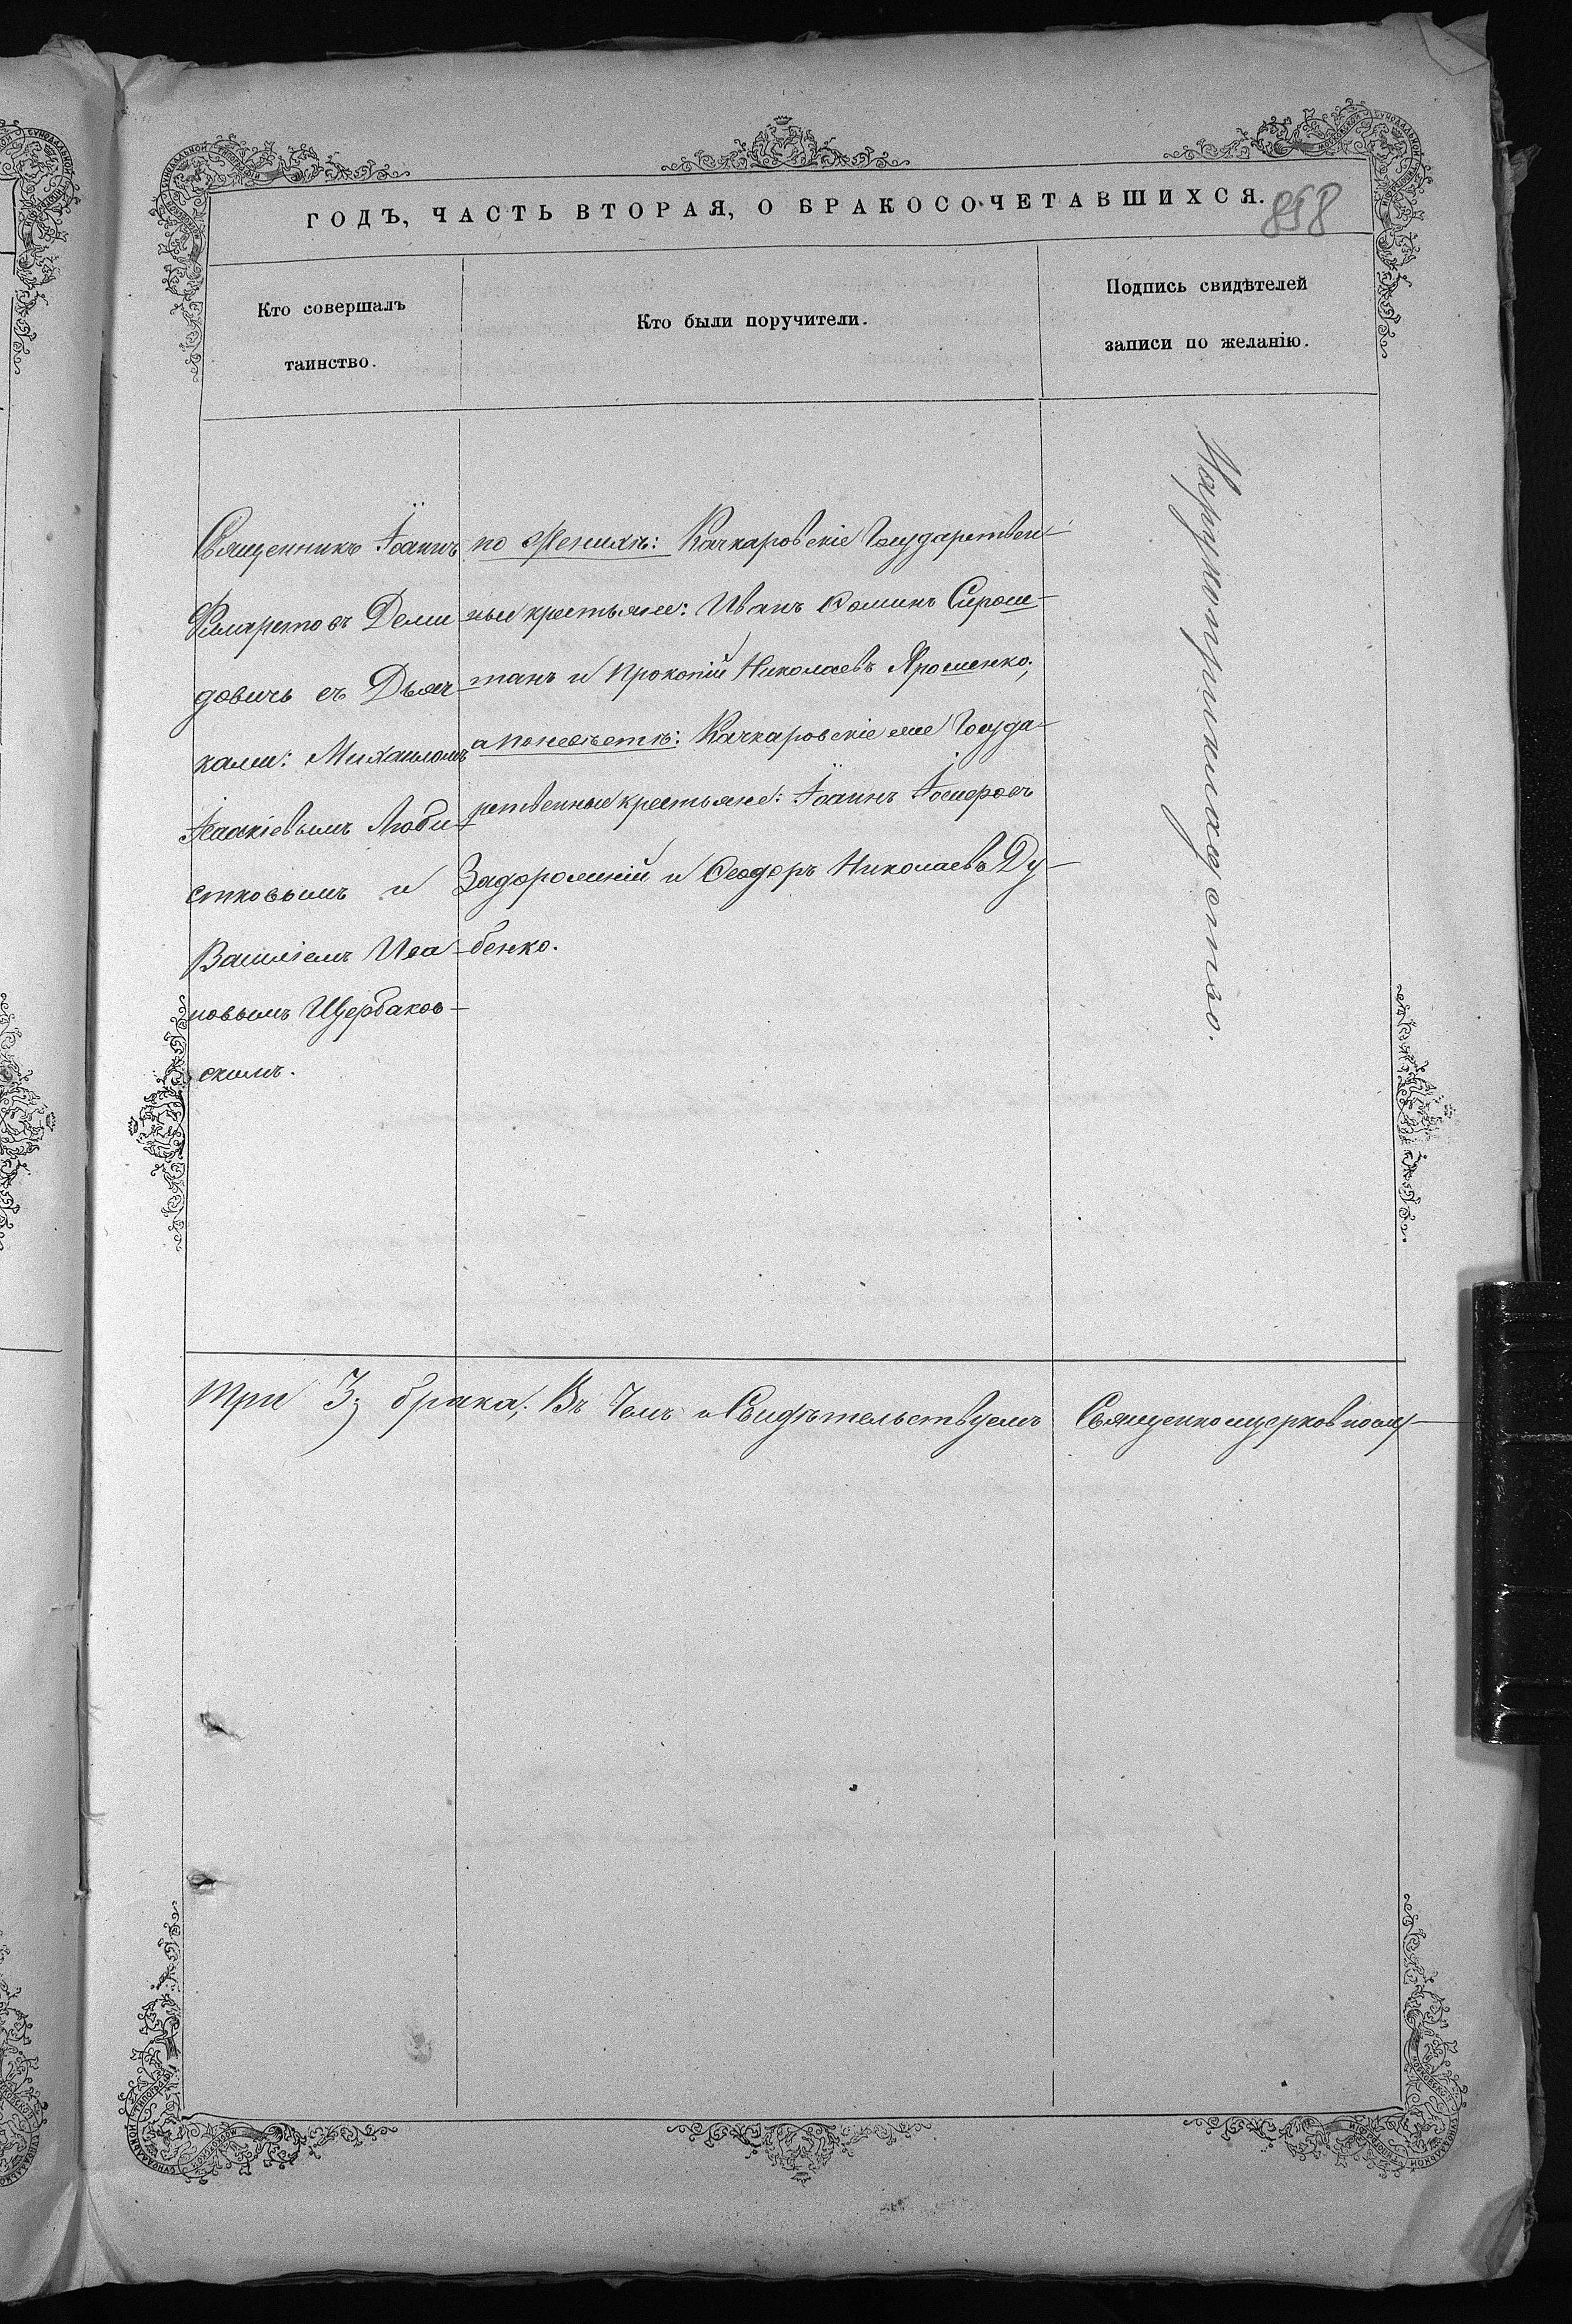 ГОДЪ, ЧАСТЬ ВТОРАЯ, О БРАКОСОЧЕТАВШИХСЯ.
858
Кто совершалъ
таинство.
Кто были поручители.
Подпись свидѣтелей
записи по желанію.
Священникъ Іоаннъ
Филаретовъ Деми
довичь съ Дьяч-
ками: Михаиломъ
Исаакіевымъ Люби-
стковымъ и
Василіемъ Ива-
новымъ Щербаков-
скимъ.
по Женихѣ: Качкаровскіе Государствен-
ные крестьяне: Иванъ Ѳоминъ Сирош-
танъ и Прокопій Николаевъ Ярошенко;
а по невѣстѣ: Качкаровскіе же Госуда-
рственные крестьяне: Іоаннъ Іосифовъ
Задорожній и Ѳеодоръ Николаевъ Ду-
бенко.
три 3; брака; Въ Чемъ и Свидѣтельствуемъ Священноцерковнослу-